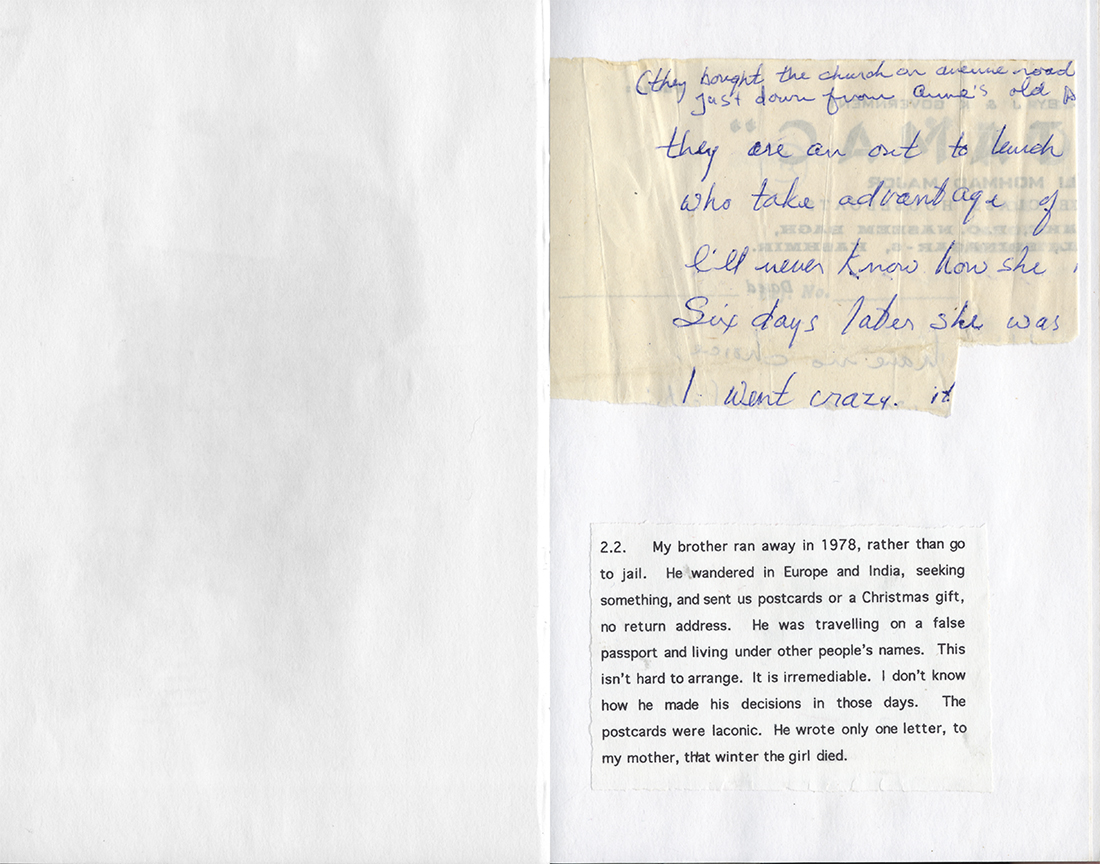 (they bought the church on avenue road
just down from Anne's old
they are an out to lunch
who take advantage of
I'll never know how she
Six days later she was
I went crazy. it
2.2. My brother ran away in 1978, rather than go
to jail. He wandered in Europe and India, seeking
something, and sent us postcards or a Christmas gift,
no return address. He was travelling on a false
passport and living under other people's names. This
isn't hard to arrange. It is irremediable. I don't know
how he made his decisions in those days. The
postcards were laconic. He wrote only one letter, to
my mother, that winter the girl died.